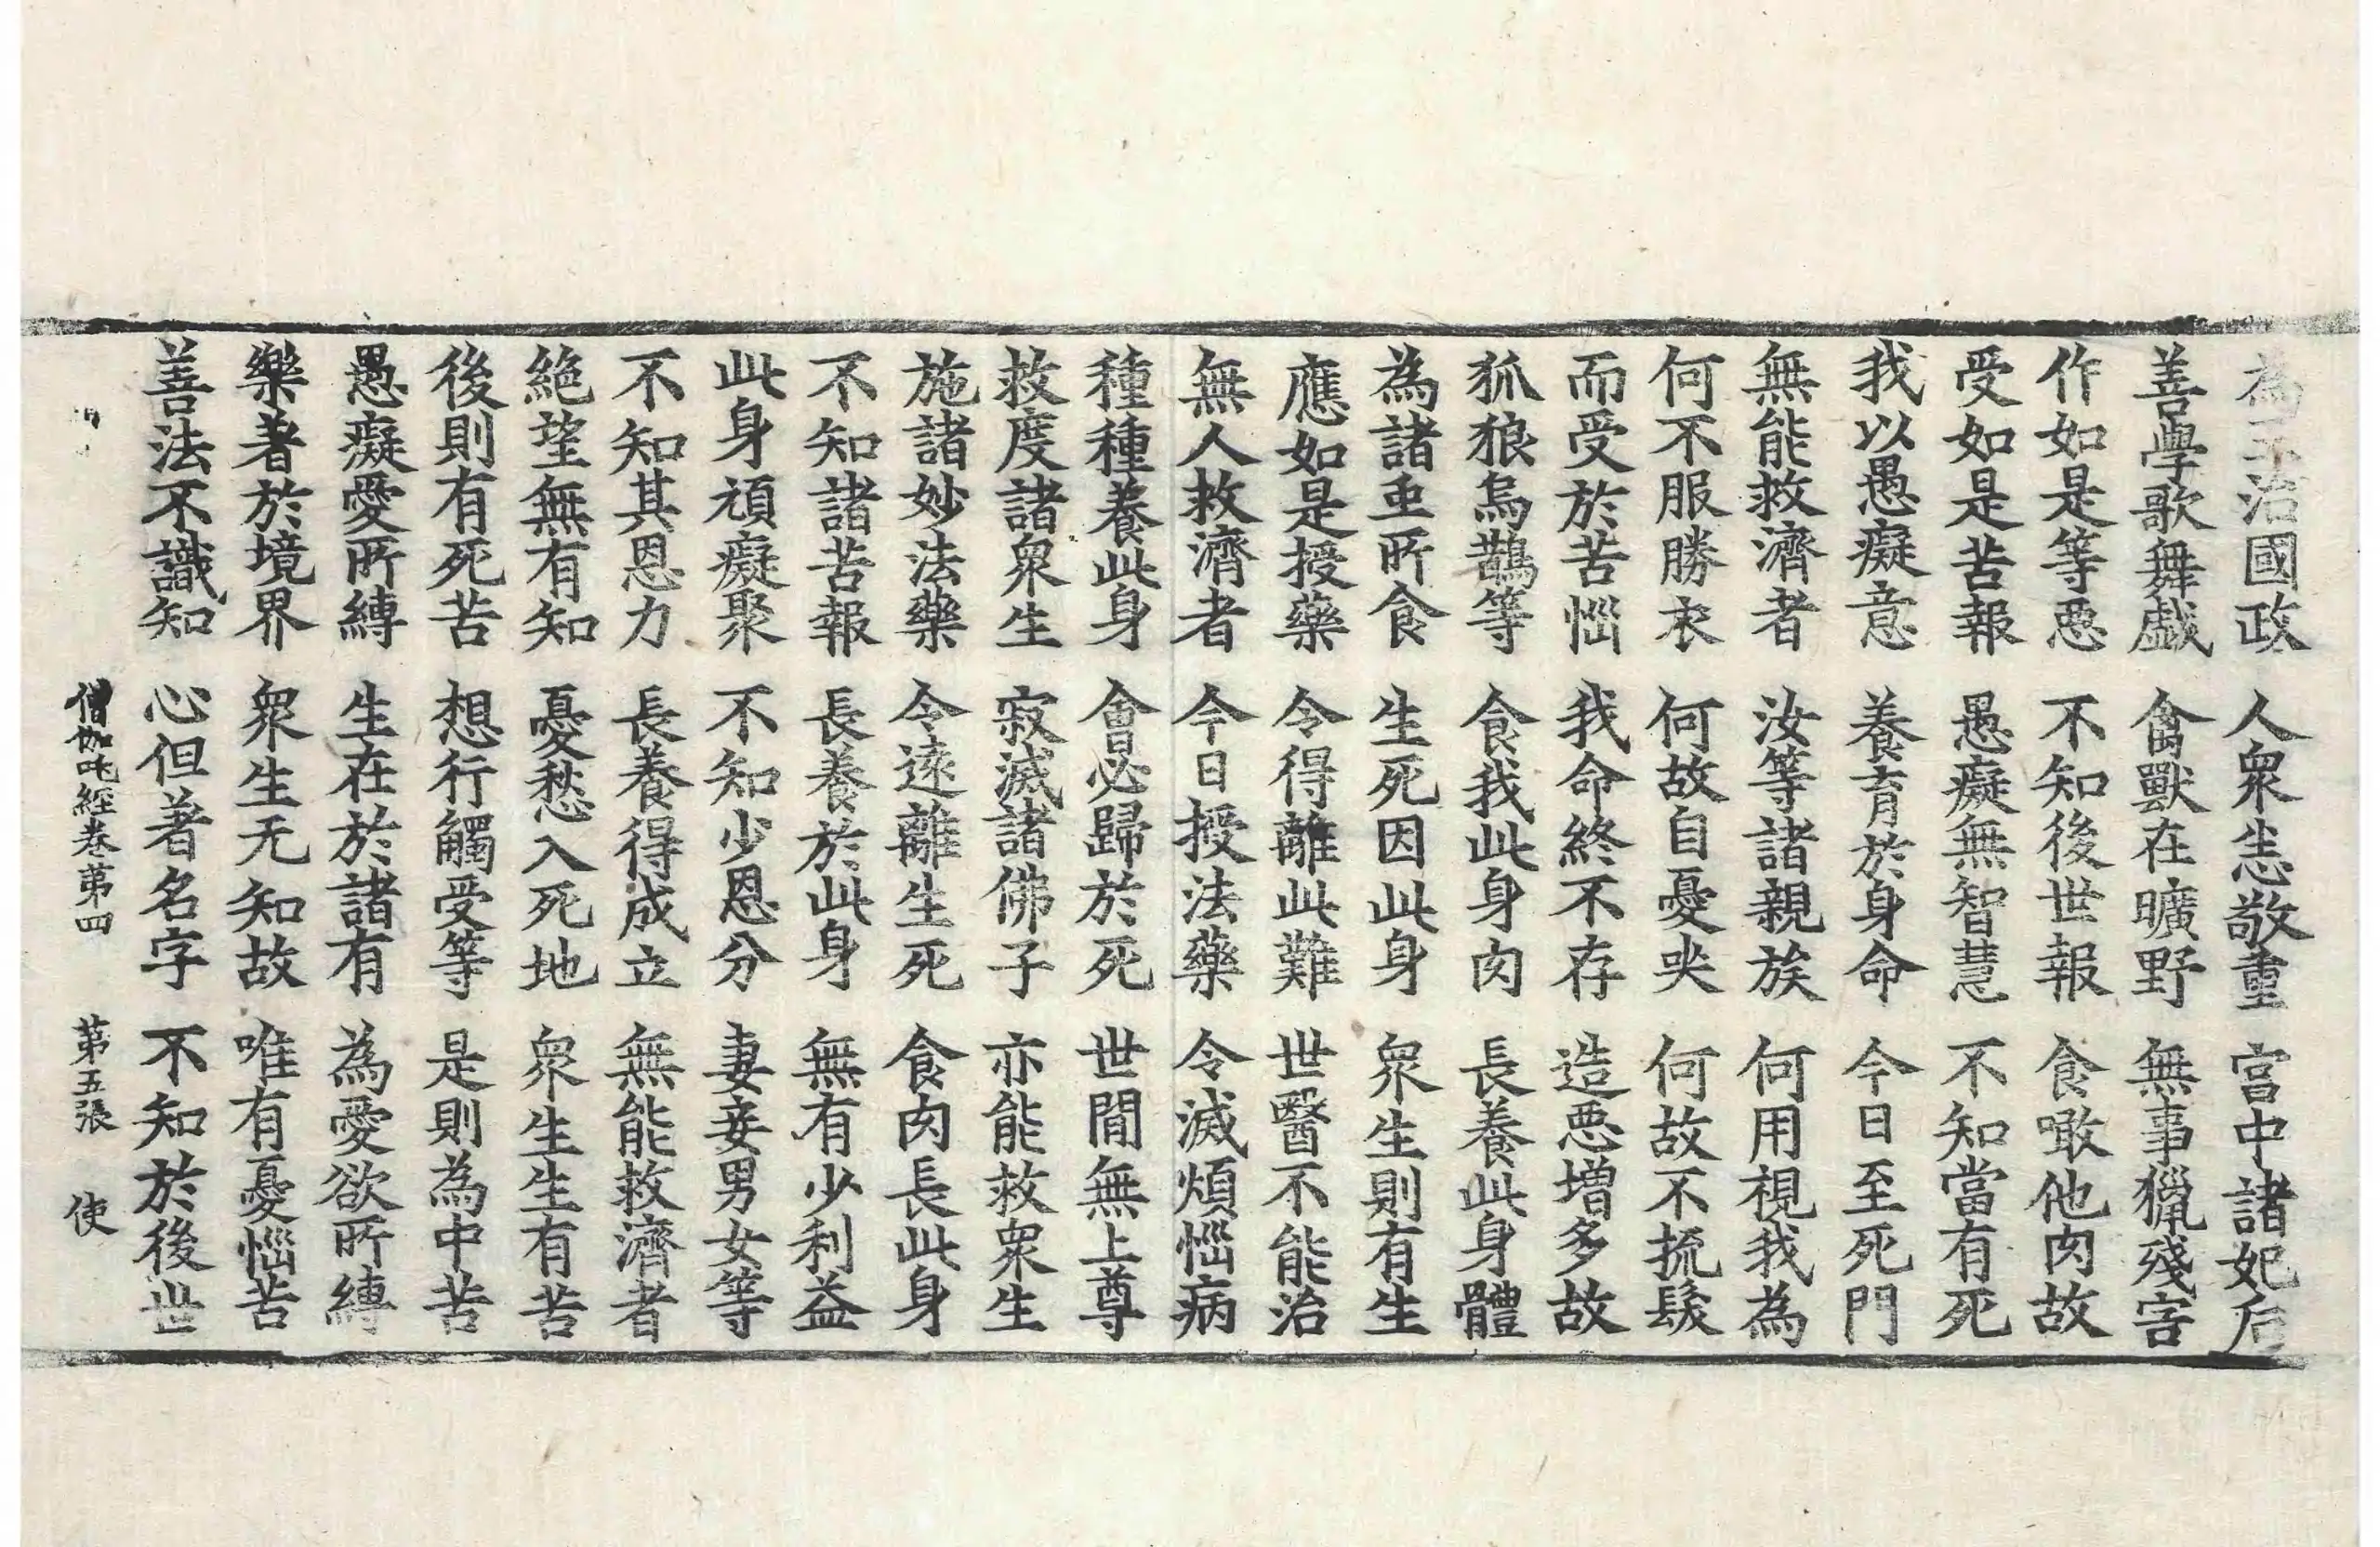 為王治國政 人衆生恭敬重 宮中諸妃后
善學歌舞戲 禽獸在曠野 無事獵殘害
作如是等惡 不知後世報 食噉他肉故
受如是苦報 愚癡無智慧 不知當有死
我以愚癡意 養育於身命 今日至死門
無能救濟者 汝等諸親族 何用視我為
何不服勝衣 何故自憂哭 何故不捬髮
而受於苦惱 我命終不存 造惡增多故
狐狼烏鵲等 食我此身肉 長養此身體
為諸虫所食 生死因此身 衆生則有生
應如是授藥 令得離此難 世醫不能治
無人救濟者 今日授法藥 令滅煩惱病
種種養此身 會必歸於死 世間無上尊
救度諸衆生 寂滅諸佛子 亦能救衆生
施諸妙法藥 令遠離生死 食肉長此身
不知諸苦報 長養於此身 無有少利益
此身頑癡聚 不知少恩分 妻妾男女等
不知其恩力 長養得成立 無能救濟者
絕望無有知 憂愁入死地 衆生生有苦
後則有死苦 想行觸受等 是則為中苦
愚癡愛所縛 生在於諸有 為愛欲所縛
樂著於境界 衆生无知故 唯有憂惱苦
善法不識知 心但著名字 不知於後世
僧伽吒經卷第四 第五張 使